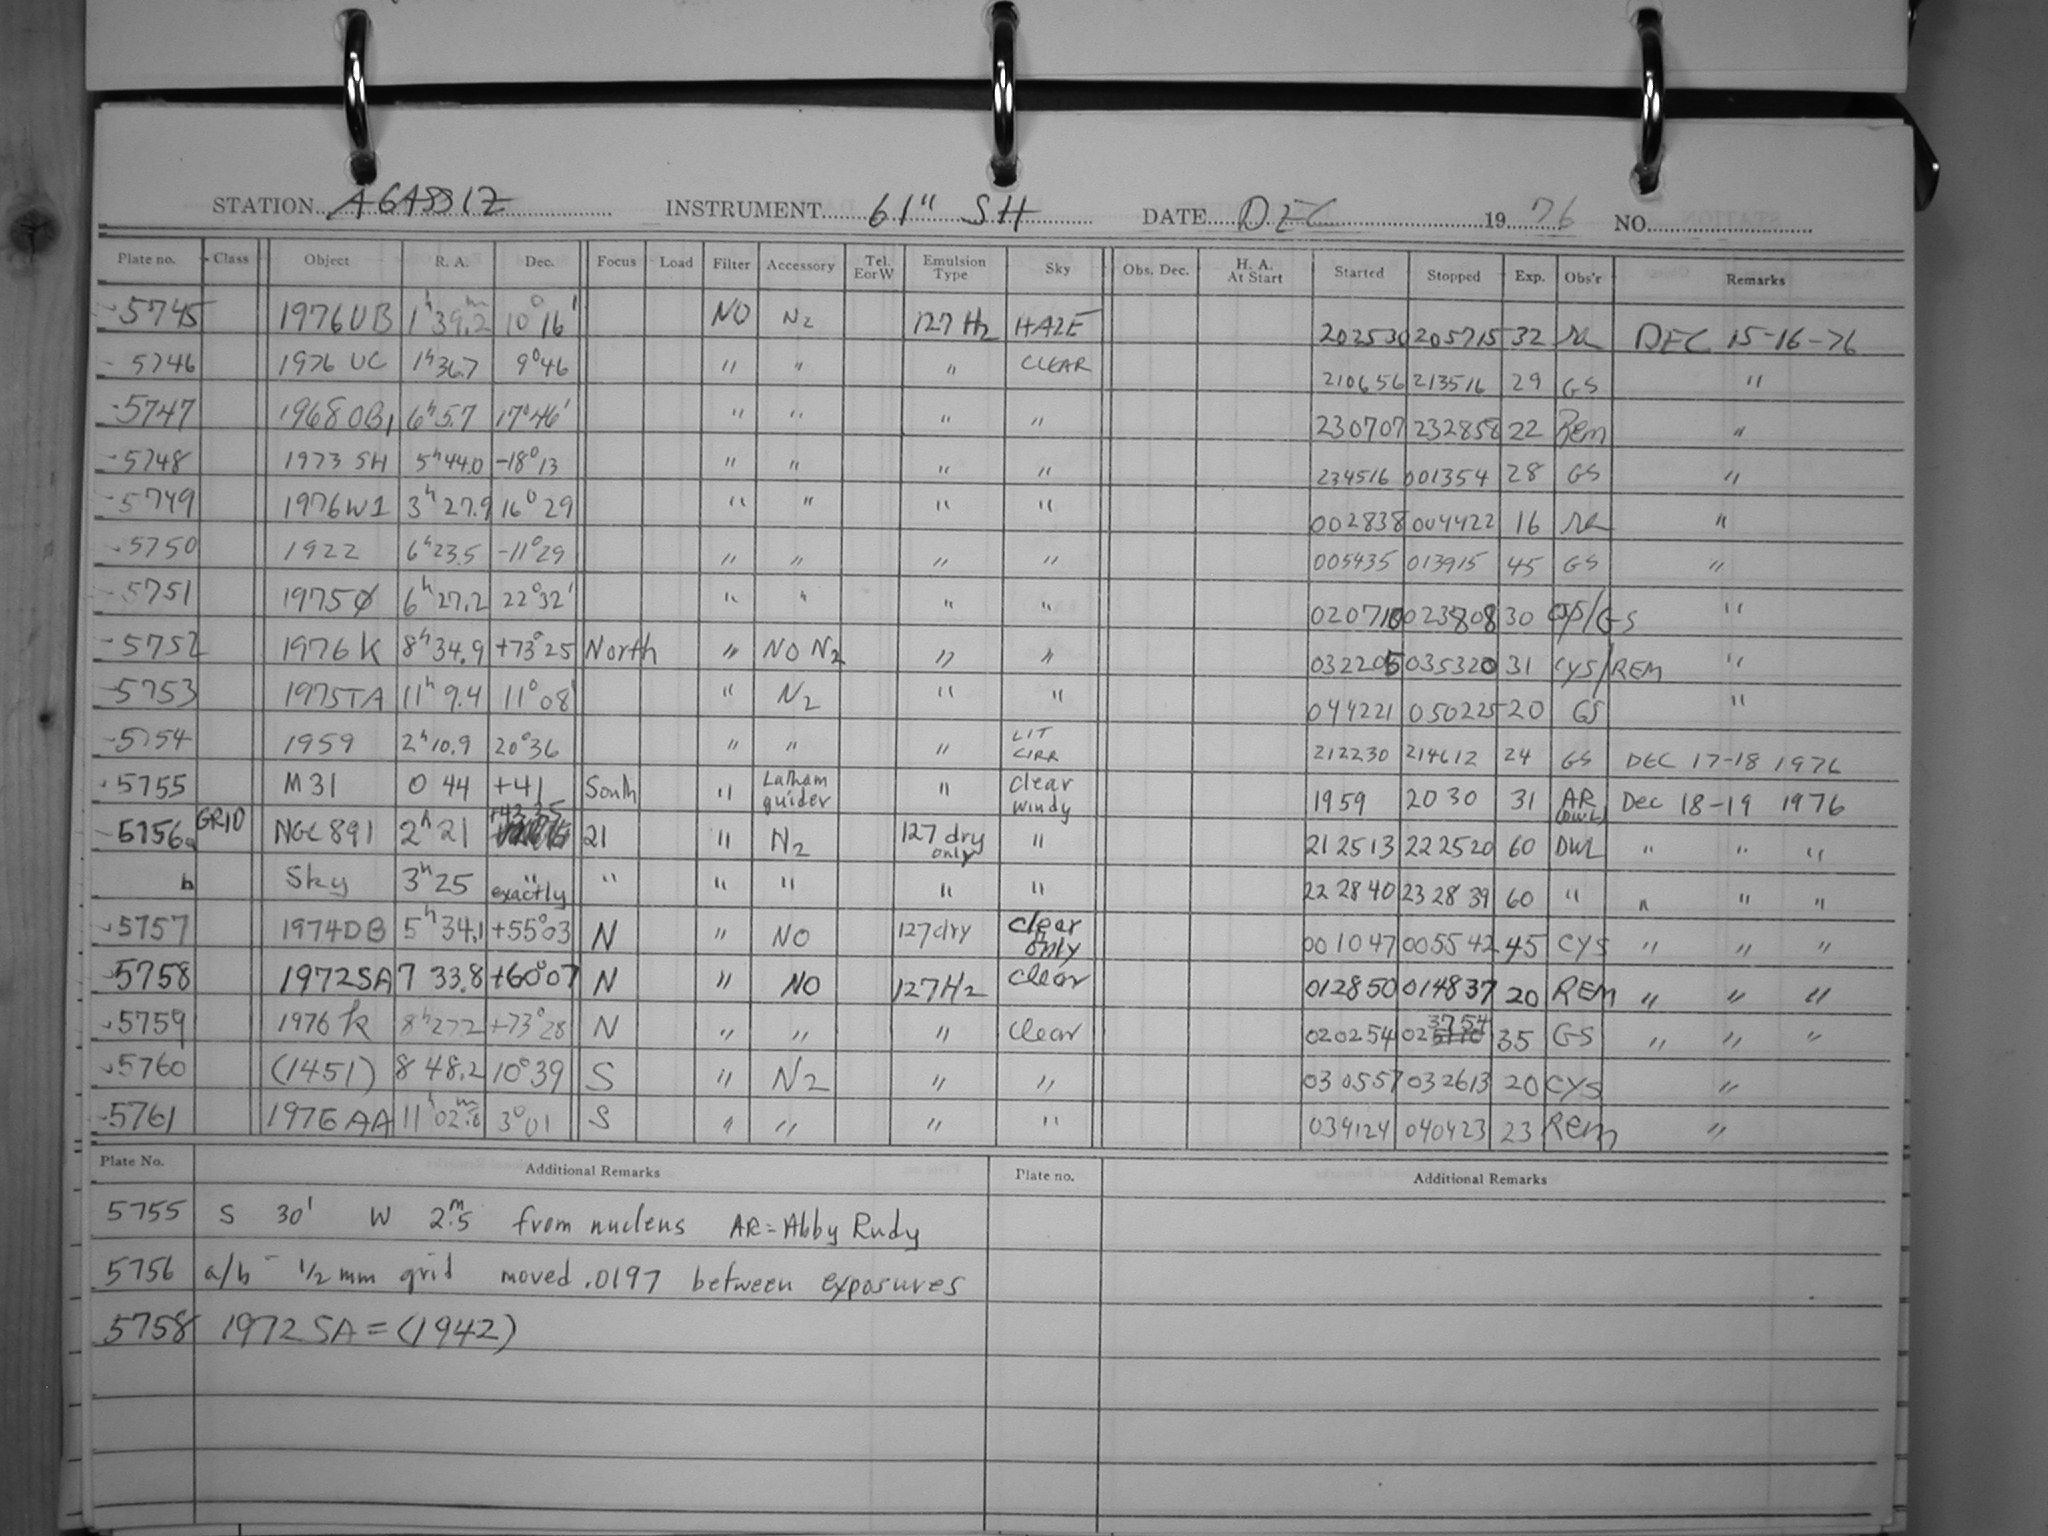 STATION AGASSIZ INSTRUMENT 61" SH DATE DEC 19 76 NO.
Plate no. Class Object R. A. Dec. Focus Load Filter Accessory Tel. E or W Emulsion Type Sky Obs. Dec. H. A. At Start Started Stopped Exp. Obs'r Remarks
5745 1976UB 1h39.2m 10°16' NO N2 127 H2 HAZE 202530 205715 32 DEC 15-16-76
5746 1976 UC 1h36.7 9°46 " " " CLEAR 210656 213516 29 GS "
5747 1968 OB1 6h5.7 17°46' " " " " 230707 232858 22 Rem "
5748 1973 SH 5h44.0 -18°13 " " " " 234516 001354 28 GS "
5749 1976W1 3h27.9 16°29 " " " " 002838 004422 16 "
5750 1922 6h23.5 -11°29 " " " " 005435 013915 45 GS "
5751 1975Ø 6h27.2 22°32' " " " " 020710 023808 30 /GS "
5752 1976 K 8h34.9 +73°25 North " NO N2 " " 032205 035320 31 CYS/REM "
5753 1975TA 11h9.4 11°08' " N2 " " 044221 050225 20 GS "
5754 1959 2h10.9 20°36 " " " LIT CIRR 212230 214612 24 GS DEC 17-18 1976
5755 M 31 0 44 +41 South " Latham guider " clear windy 1959 2030 31 AR (DWL) Dec 18-19 1976
5756a GRID NGC 891 2h21 +42 35 21 " N2 127 dry only " 212513 222520 60 DWL " " "
b Sky 3h25 " exactly " " " " " 222840 232839 60 " " " "
5757 1974DB 5h34.1 +55°03 N " NO 127 dry only clear 001047 005542 45 CYS " " "
5758 1972SA 7 33.8 +60°07 N " NO 127H2 clear 012850 014837 20 REM " " "
5759 1976 K 8h27.2 +73°28 N " " " clear 020254 023754 35 GS " " "
5760 (1451) 8 48.2 10°39 S " N2 " " 030557 032613 20 CYS "
5761 1976 AA 11h02.6m 3°01 S " " " " 034124 040423 23 Rem "
Plate No. Additional Remarks Plate no. Additional Remarks
5755 S 30' W 2m.5 from nucleus AR = Abby Rudy
5756 a/b - 1/2 mm grid moved .0197 between exposures
5758 1972 SA = (1942)